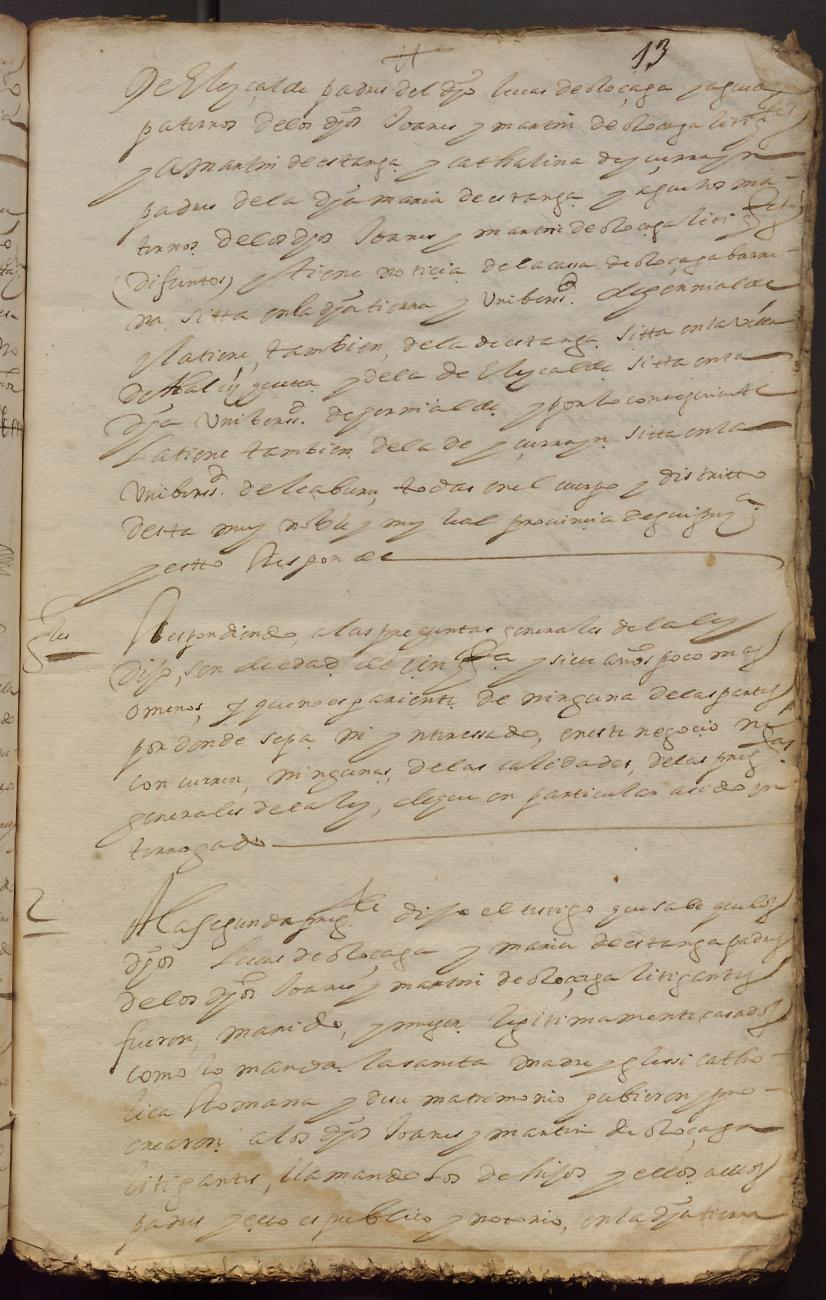 13
De Eleyçalde padres del dho lucas de oloçaga y aguelos
paternos delos dhos Joanes y martin de oloçaga litigtes
y a Martin de estanga y cathalina de ycurrayn
padres dela dha maria de estanga y aguelos ma-
ternos delos dhos Joanes y martin de oloçaga litigtes
(difuntos) y tiene noticia dela cassa de oloçaga barre-
na sitta enla dha tierra y Unibersd de
y la tiene tambien, dela de estanga sitta enla Villa
de y dela de Eleyçalde sitta enla
dha Unibersd de y por lo conseguiente
la tiene tambien dela de ycurrayn sitta enla
Unibersd de leaburu, todas enel cuerpo y distritto
desta muy noble y muy leal provincia de guipuzca
y esto Responde
gles Respondiendo, alas preguntas generales dela ley
Dijo, ser de edad de cinqta y siete años poco mas
o menos, y que no es pariente de ninguna delas partes
por donde sepa ni ynteressado, eneste negocio ni le
concurren, ningunas, delas calidades, delas pregtas
generales dela ley, de que en particular a sido yn
terrogado
2 Ala segunda pregta dijo el testigo que sabe que los
dhos lucas de oloçaga y maria de estanga padres
delos dhos Joanes y martin de oloçaga litigantes
fueron, marido, y muger legitimamente casados
como lo manda la santa madre yglesia catho-
lica Romana y de su matrimonio ubieron y pro-
crearon alos dhos Joanes y martin de oloçaga
litigantes, llamandolos de hijos y ellos a ellos
padres y esto es publico y notorio, enla dha tierra